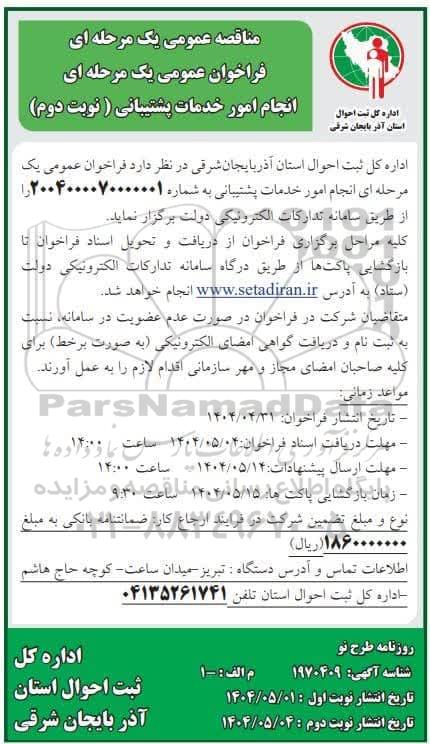 مناقصه عمومی یک مرحله ای
فراخوان عمومی یک مرحله ای
انجام امور خدمات پشتیبانی ( نوبت دوم)
اداره کل ثبت احوال
استان آذربایجان شرقی
اداره کل ثبت احوال استان آذربایجان‌شرقی در نظر دارد فراخوان عمومی یک
مرحله ای انجام امور خدمات پشتیبانی به شماره ۲۰۰۴۰۰۰۰۷۰۰۰۰۰۰۱را
از طریق سامانه تدارکات الکترونیکی دولت برگزار نماید.
کلیه مراحل برگزاری فراخوان از دریافت و تحویل اسناد فراخوان تا
بازگشایی پاکت‌ها از طریق درگاه سامانه تدارکات الکترونیکی دولت
(ستاد) به آدرس www.setadiran.ir انجام خواهد شد.
متقاضیان شرکت در فراخوان در صورت عدم عضویت در سامانه، نسبت
به ثبت نام و دریافت گواهی امضای الکترونیکی (به صورت برخط) برای
کلیه صاحبان امضای مجاز و مهر سازمانی اقدام لازم را به عمل آورند.
مواعد زمانی:
ParsNamadData
- تاریخ انتشار فراخوان: ۱۴۰۴/۰۴/۳۱
- مهلت دریافت اسناد فراخوان:۱۴۰۴/۰۵/۰۴ ساعت ۱۴:۰۰
- مهلت ارسال پیشنهادات:۱۴۰۴/۰۵/۱۴ ساعت ۱۴:۰۰
- زمان بازگشایی پاکت ها: ۱۴۰۴/۰۵/۱۵ ساعت ۹:۳۰
نوع و مبلغ تضمین شرکت در فرایند ارجاع کار: ضمانتنامه بانکی به مبلغ
۱۸۶۰۰۰۰۰۰۰(ریال)
اطلاعات تماس و آدرس دستگاه : تبریز-میدان ساعت- کوچه حاج هاشم
-اداره کل ثبت احوال استان تلفن ۰۴۱۳۵۲۶۱۷۴۱
روزنامه طرح نو
شناسه آگهی: ۱۹۷۰۴۰۹ م الف : -۱۰
تاریخ انتشار نوبت اول : ۱۴۰۴/۰۵/۰۱
تاریخ انتشار نوبت دوم : ۱۴۰۴/۰۵/۰۴
اداره کل
ثبت احوال استان
آذربایجان شرقی